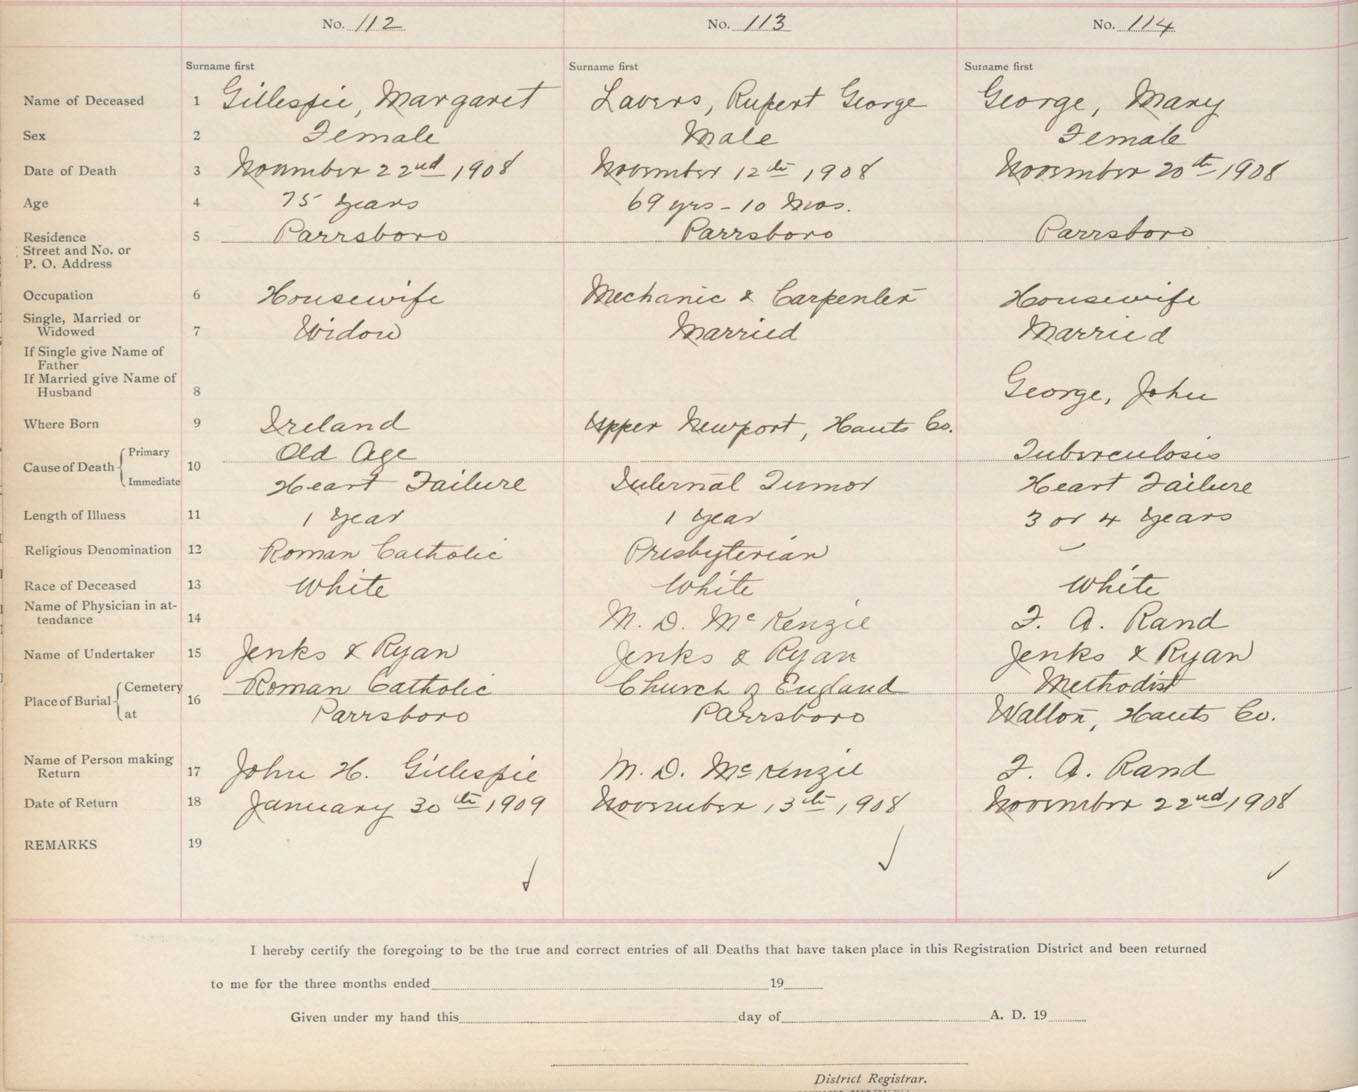 No. 112 No. 113 No. 114
Surname first Surname first Surname first
Name of Deceased 1 Gillespie, Margaret Lavers, Rupert George George, Mary
Sex 2 Female Male Female
Date of Death 3 November 22nd 1908 November 12th 1908 November 20th 1908
Age 4 75 Years 69 yrs - 10 Mos.
Residence 5 Parrsboro Parrsboro Parrsboro
Street and No. or
P. O. Address
Occupation 6 Housewife Mechanic & Carpenter Housewife
Single, Married or
Widowed 7 Widow Married Married
If Single give Name of
Father
If Married give Name of
Husband 8 George, John
Where Born 9 Ireland Upper Newport, Hants Co.
Primary Old Age Tuberculosis
Cause of Death 10
Immediate Heart Failure Internal Tumor Heart Failure
Length of Illness 11 1 Year 1 Year 3 or 4 Years
Religious Denomination 12 Roman Catholic Presbyterian
Race of Deceased 13 White White White
Name of Physician in at-
tendance 14 M. D. McKenzie F. A. Rand
Name of Undertaker 15 Jenks & Ryan Jenks & Ryan Jenks & Ryan
Cemetery Roman Catholic Church of England Methodist
Place of Burial 16
at Parrsboro Parrsboro Walton, Hants Co.
Name of Person making
Return 17 John H. Gillespie M. D. McKenzie F. A. Rand
Date of Return 18 January 30th 1909 November 13th 1908 November 22nd 1908
REMARKS 19
I hereby certify the foregoing to be the true and correct entries of all Deaths that have taken place in this Registration District and been returned
to me for the three months ended 19
Given under my hand this day of A. D. 19
District Registrar.